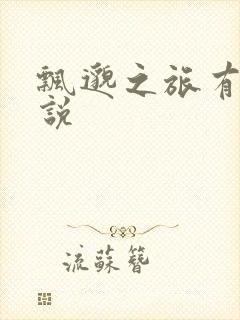 飄邈之旅有
說
流蘇簪